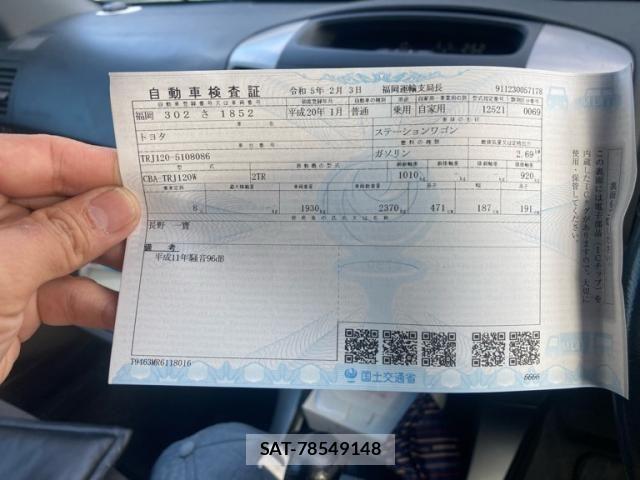 自動車検査証
令和5年 2月 3日
福岡運輸支局長
911230057178
自動車登録番号又は車両番号 初度登録年月 自動車の種別 用途 自家用・事業用の別 型式指定番号 類別区分番号
福岡 302 さ 1852 平成20年 1月 普通 乗用 自家用 12521 0069
車名 車体の形状
トヨタ ステーションワゴン
車台番号 燃料の種類
TRJ120-5108086 ガソリン 2.69
型式 原動機の型式
CBA-TRJ120W 2TR 1010 920
乗車定員 最大積載量 車両重量 車両総重量 長さ 幅 高さ
8 1930kg 2370kg 471cm 187cm 191cm
使用者の氏名又は名称
長野 一寶
備考
平成11年騒音96dB
T9463MR6118016
国土交通省
6666
この裏面には電子部品(ICチップ)を
内蔵したICタグがありますので、大切に
使用・保管してください。
SAT-78549148